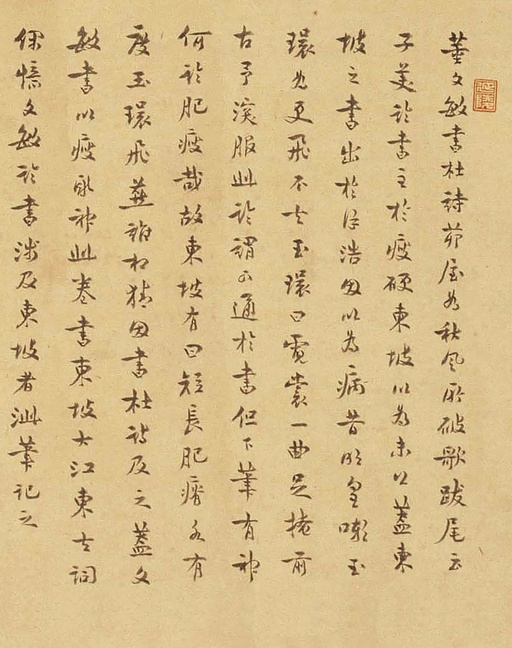 董文敏書杜詩茅屋為秋風所破歌跋尾云
子美論書主於瘦硬東坡以為未公蓋東
坡之書出於徐浩故以為病昔明皇嘲玉
環為更飛不去玉環曰霓裳一曲足掩前
古予深服此論謂不通於書但下筆有神
何論肥瘦哉故東坡有曰短長肥瘠各有
度玉環飛燕誰敢憎因書杜詩及之蓋文
敏書以瘦取神此卷書東坡大江東去詞
保憶文敏論書涉及東坡者泚筆記之